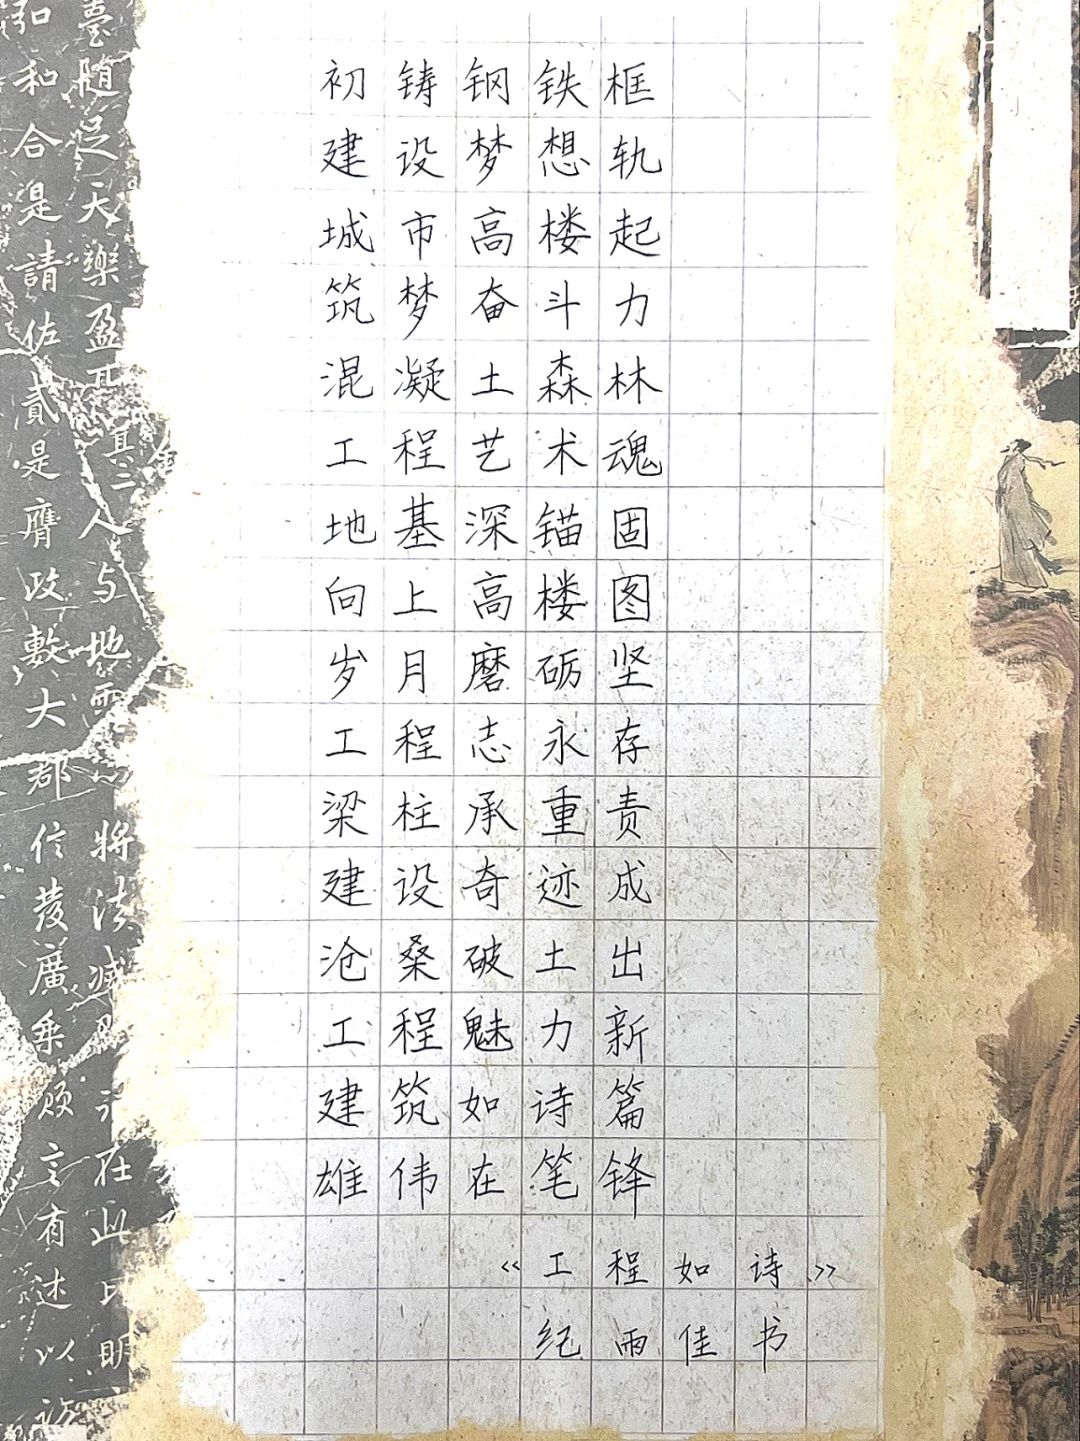 初铸钢铁框
建设梦想轨
城市高楼起
筑梦奋斗力
混凝土森林
工程艺术魂
地基深锚固
向上高楼图
岁月磨砺坚
工程志永存
梁柱承重责
建设奇迹成
沧桑破土出
工程魅力新
建筑如诗篇
雄伟在笔锋
《工程如诗》
纪雨佳书
随足天乐盈
其二
人与地
將法减
在此
明
和合是請佐貳是膺政數大郡信
廣乘
須言有述以